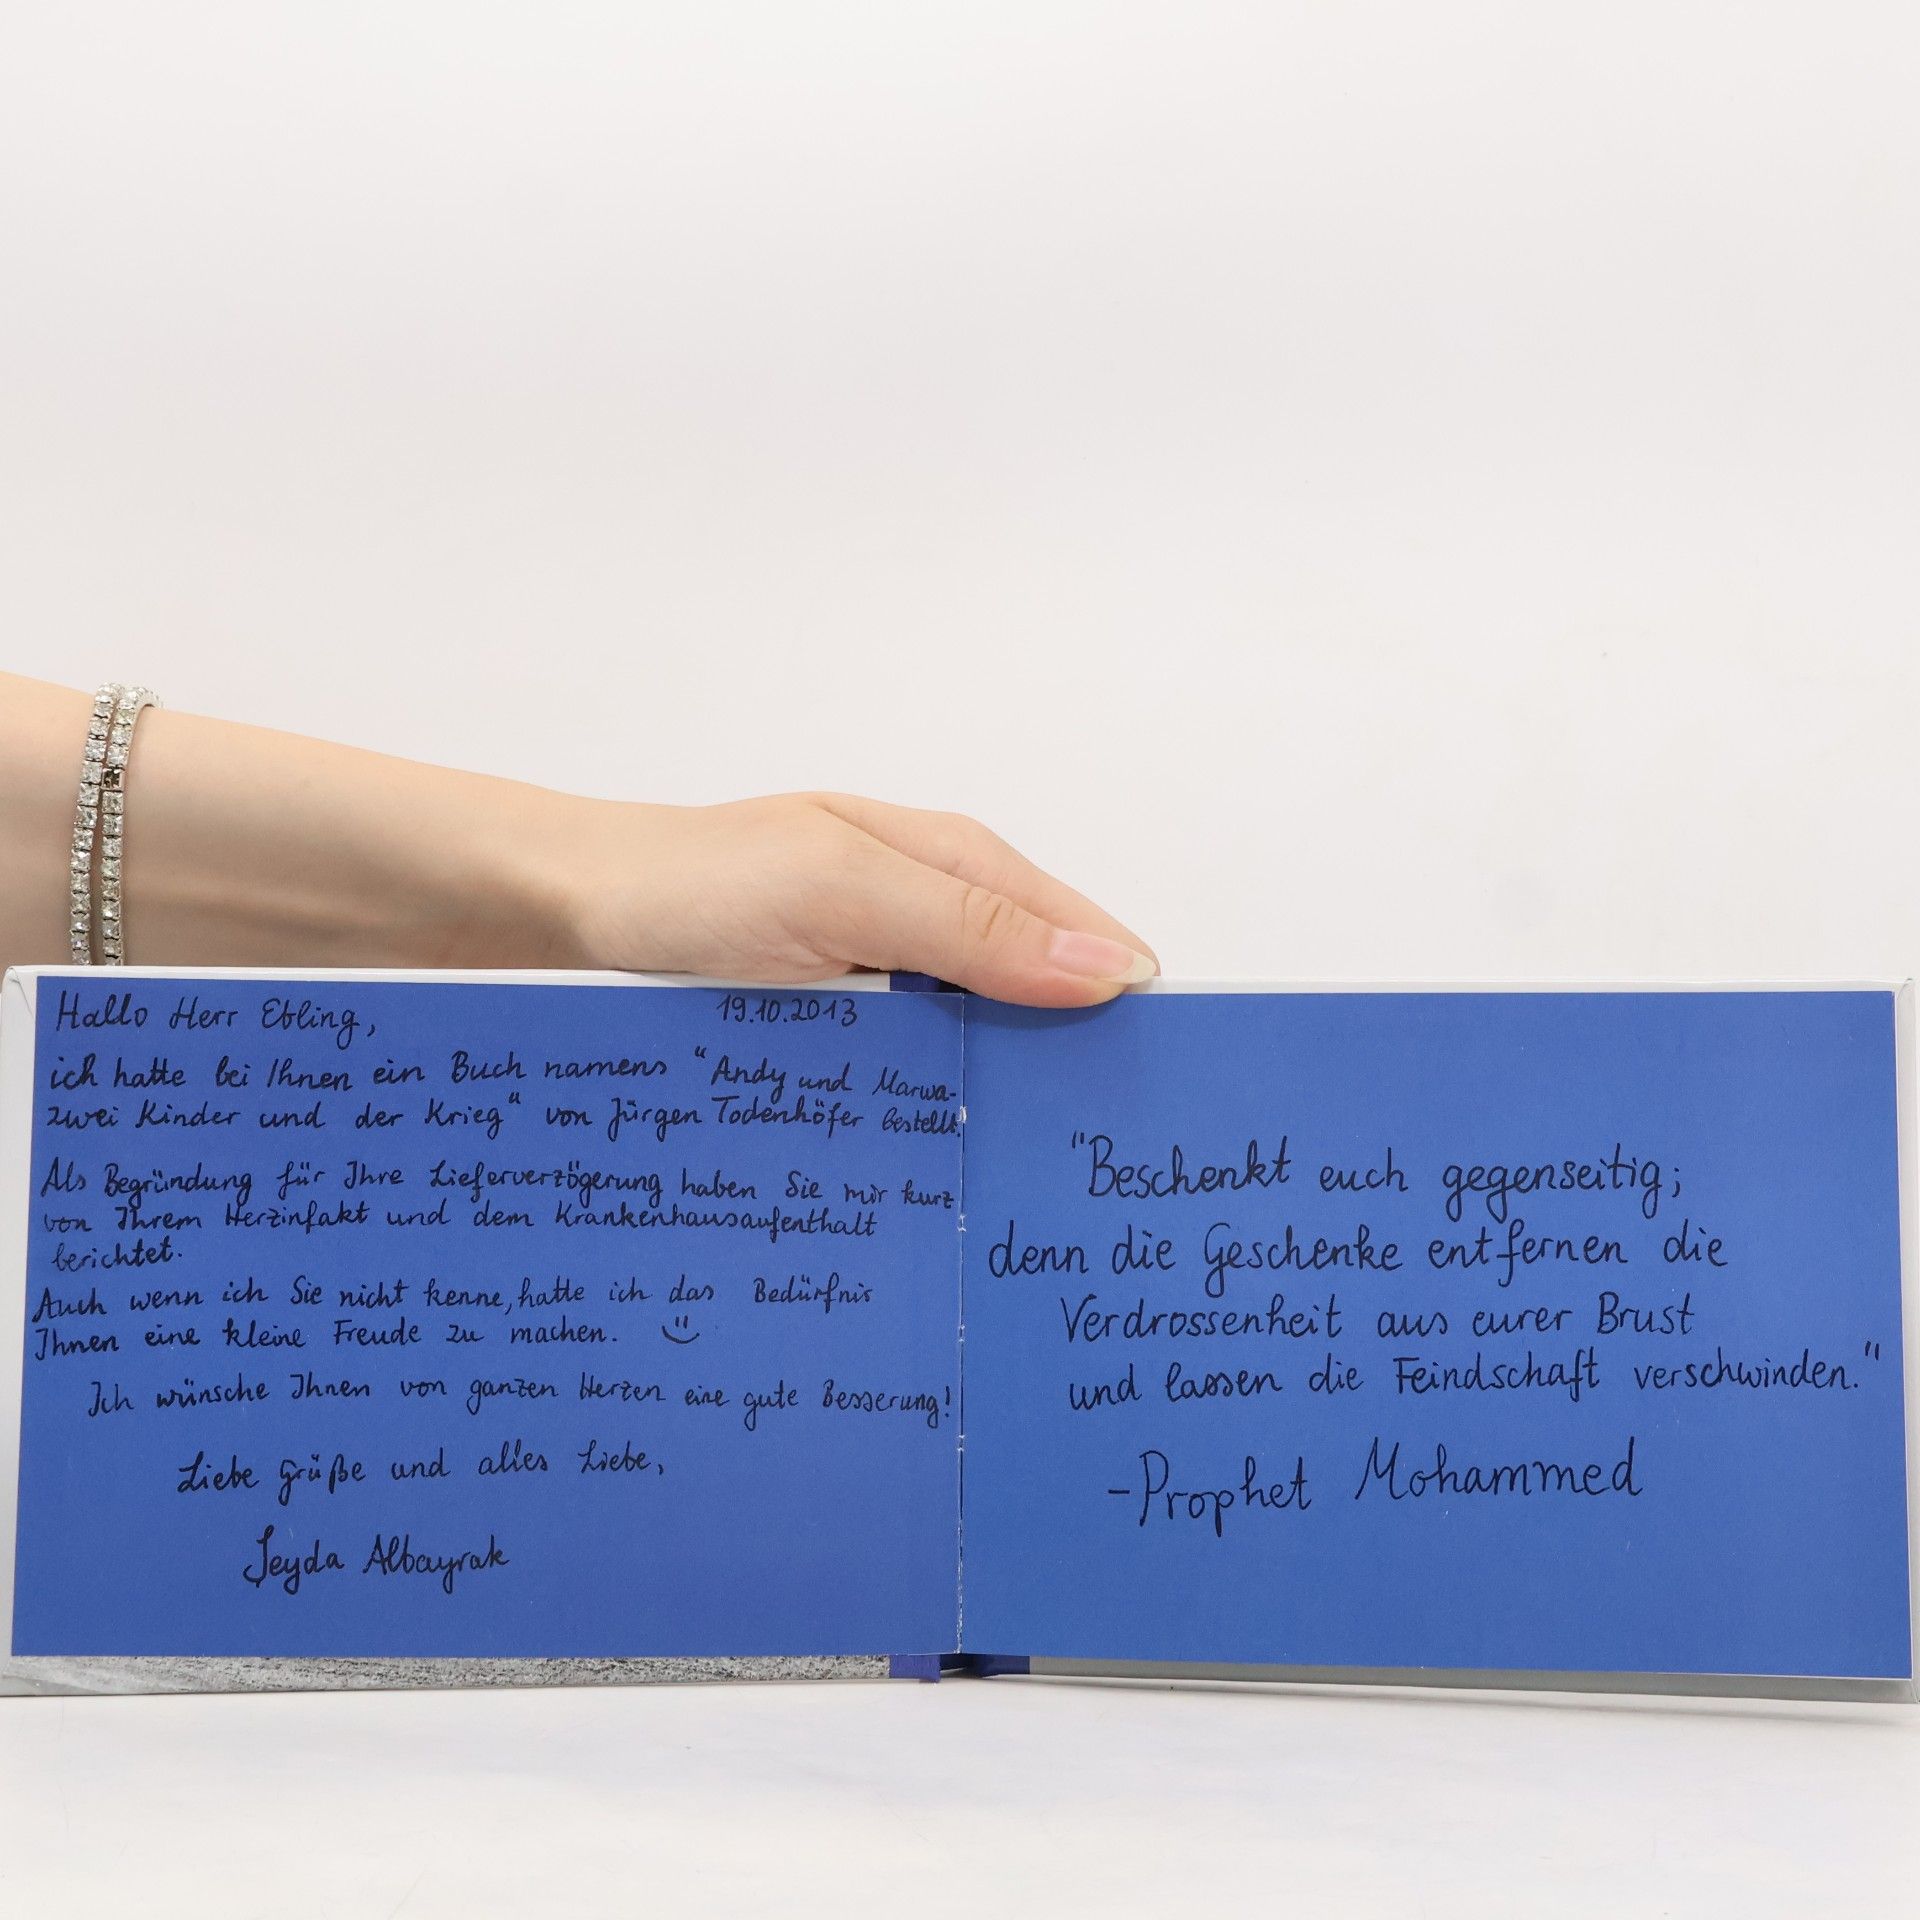 Hallo Herr Ebling,
19.10.2013
ich hatte bei Ihnen ein Buch namens "Andy und Marwa-
zwei Kinder und der Krieg" von Jürgen Todenhöfer bestellt.
Als Begründung für Ihre Lieferverzögerung haben Sie mir kurz
von Ihrem Herzinfakt und dem Krankenhausaufenthalt
berichtet.
Auch wenn ich Sie nicht kenne, hatte ich das Bedürfnis
Ihnen eine kleine Freude zu machen.
Ich wünsche Ihnen von ganzen Herzen eine gute Besserung!
Liebe Grüße und alles Liebe,
Şeyda Albayrak
"Beschenkt euch gegenseitig;
denn die Geschenke entfernen die
Verdrossenheit aus eurer Brust
und lassen die Feindschaft verschwinden."
-Prophet Mohammed